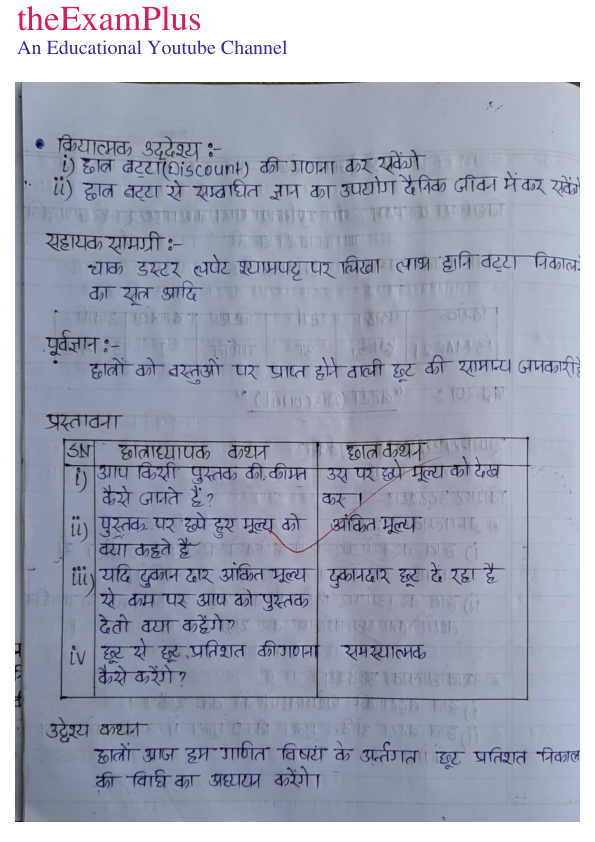 theExamPlus
An Educational Youtube Channel
• कियात्मक उद्देश्य :-
i) छात्र बट्टा (Discount) की गणना कर सकेंगे
ii) छात्र बट्टा से सम्बाधित ज्ञान का उपयोग दैनिक जीवन में कर सकेंगे
सहायक सामग्री :-
चाक डस्टर लपेट श्यामपट्ट पर लिखा लाभ हानि बट्टा निकाल
का सूत्र आदि
पूर्वज्ञान :-
छात्रों को वस्तुओं पर प्राप्त होने वाली छूट की सामान्य जानकारी है
प्रस्तावना
SN छात्राध्यापक कथन छात्र कथन
i) आप किसी पुस्तक की कीमत उस पर छपे मूल्य को देख
कैसे जानते हैं? कर ।
ii) पुस्तक पर छपे हुए मूल्य को अंकित मूल्य
क्या कहते है
iii) यदि दुकान दार अंकित मूल्य दुकानदार छूट दे रहा है
से कम पर आप को पुस्तक
देतो क्या कहेंगे?
iv छूट से छूट प्रतिशत की गणना समस्यात्मक
कैसे करेंगे?
उद्देश्य कथन
छात्रों आज हम गणित विषय के अर्न्तगत छूट प्रतिशत निकाल
की विधि का अध्ययन करेंगे।